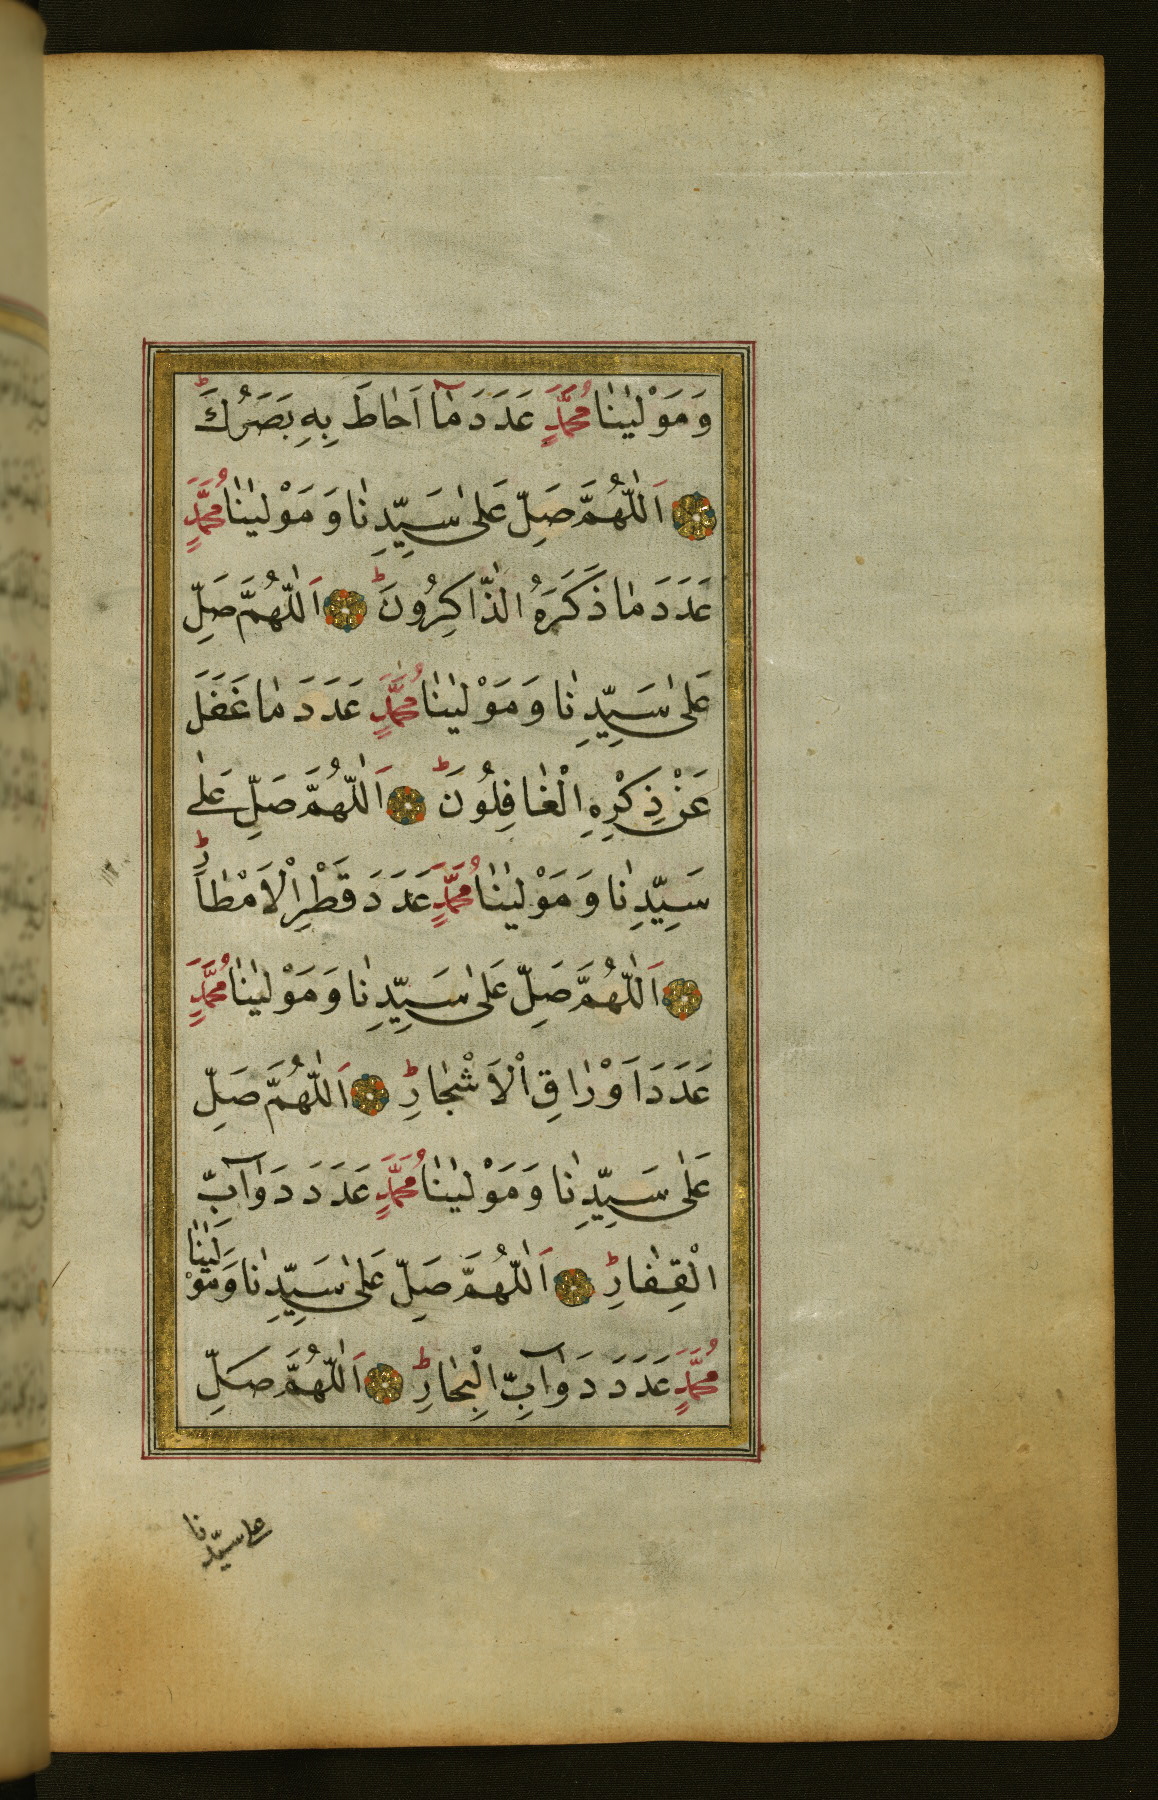 وَمَوْلٰينَا مُحَمَّدٍ عَدَدَ مَٓا اَحَاطَ بِهِ بَصَرُكَ ط
اَللّٰهُمَّ صَلِّ عَلٰى سَيِّدِنَا وَمَوْلٰينَا مُحَمَّدٍ
عَدَدَ مَا ذَكَرَهُ الذَّاكِرُونَ ط اَللّٰهُمَّ صَلِّ
عَلٰى سَيِّدِنَا وَمَوْلٰينَا مُحَمَّدٍ عَدَدَ مَا غَفَلَ
عَنْ ذِكْرِهِ الْغَافِلُونَ ط اَللّٰهُمَّ صَلِّ عَلٰى
سَيِّدِنَا وَمَوْلٰينَا مُحَمَّدٍ عَدَدَ قَطْرِ الْاَمْطَارِ ط
اَللّٰهُمَّ صَلِّ عَلٰى سَيِّدِنَا وَمَوْلٰينَا مُحَمَّدٍ
عَدَدَ اَوْرَاقِ الْاَشْجَارِ ط اَللّٰهُمَّ صَلِّ
عَلٰى سَيِّدِنَا وَمَوْلٰينَا مُحَمَّدٍ عَدَدَ دَوَآبِّ
الْقِفَارِ ط اَللّٰهُمَّ صَلِّ عَلٰى سَيِّدِنَا وَمَوْلٰينَا
مُحَمَّدٍ عَدَدَ دَوَآبِّ الْبِحَارِ ط اَللّٰهُمَّ صَلِّ
على سيّدنا